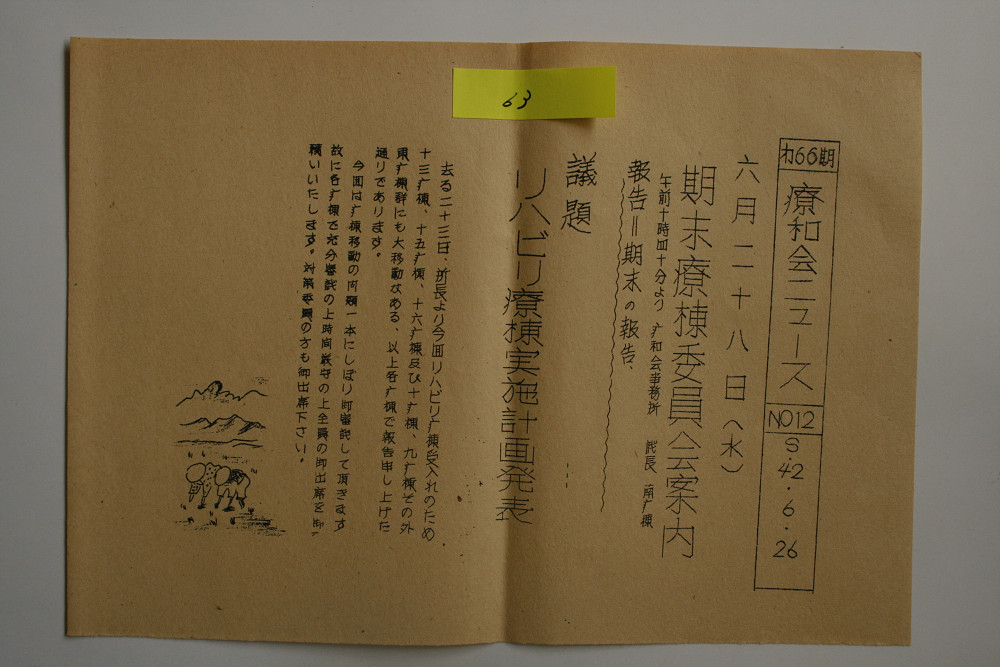 63
才66期
療和会ニュース
NO12
S.42.6.26
六月二十八日(水)
期末療棟委員会案内
午前十時四十分より 疒和会事務所 南疒棟
報告=期末の報告、
議題
リハビリ療棟実施計画発表
去る二十三日、所長より今回リハビリ疒棟受入れのため
十三疒棟、十五疒棟、十六疒棟及び十疒棟、九疒棟その外
東疒棟群にも大移動がある、以上各疒棟で報告申し上げた
通りであります。
今回は疒棟移動の問題一本にしぼり御審議して頂きます
故に各疒棟で充分審議の上時間厳守の上全員の御出席を御
願いいたします。対策委員の方も御出席下さい。